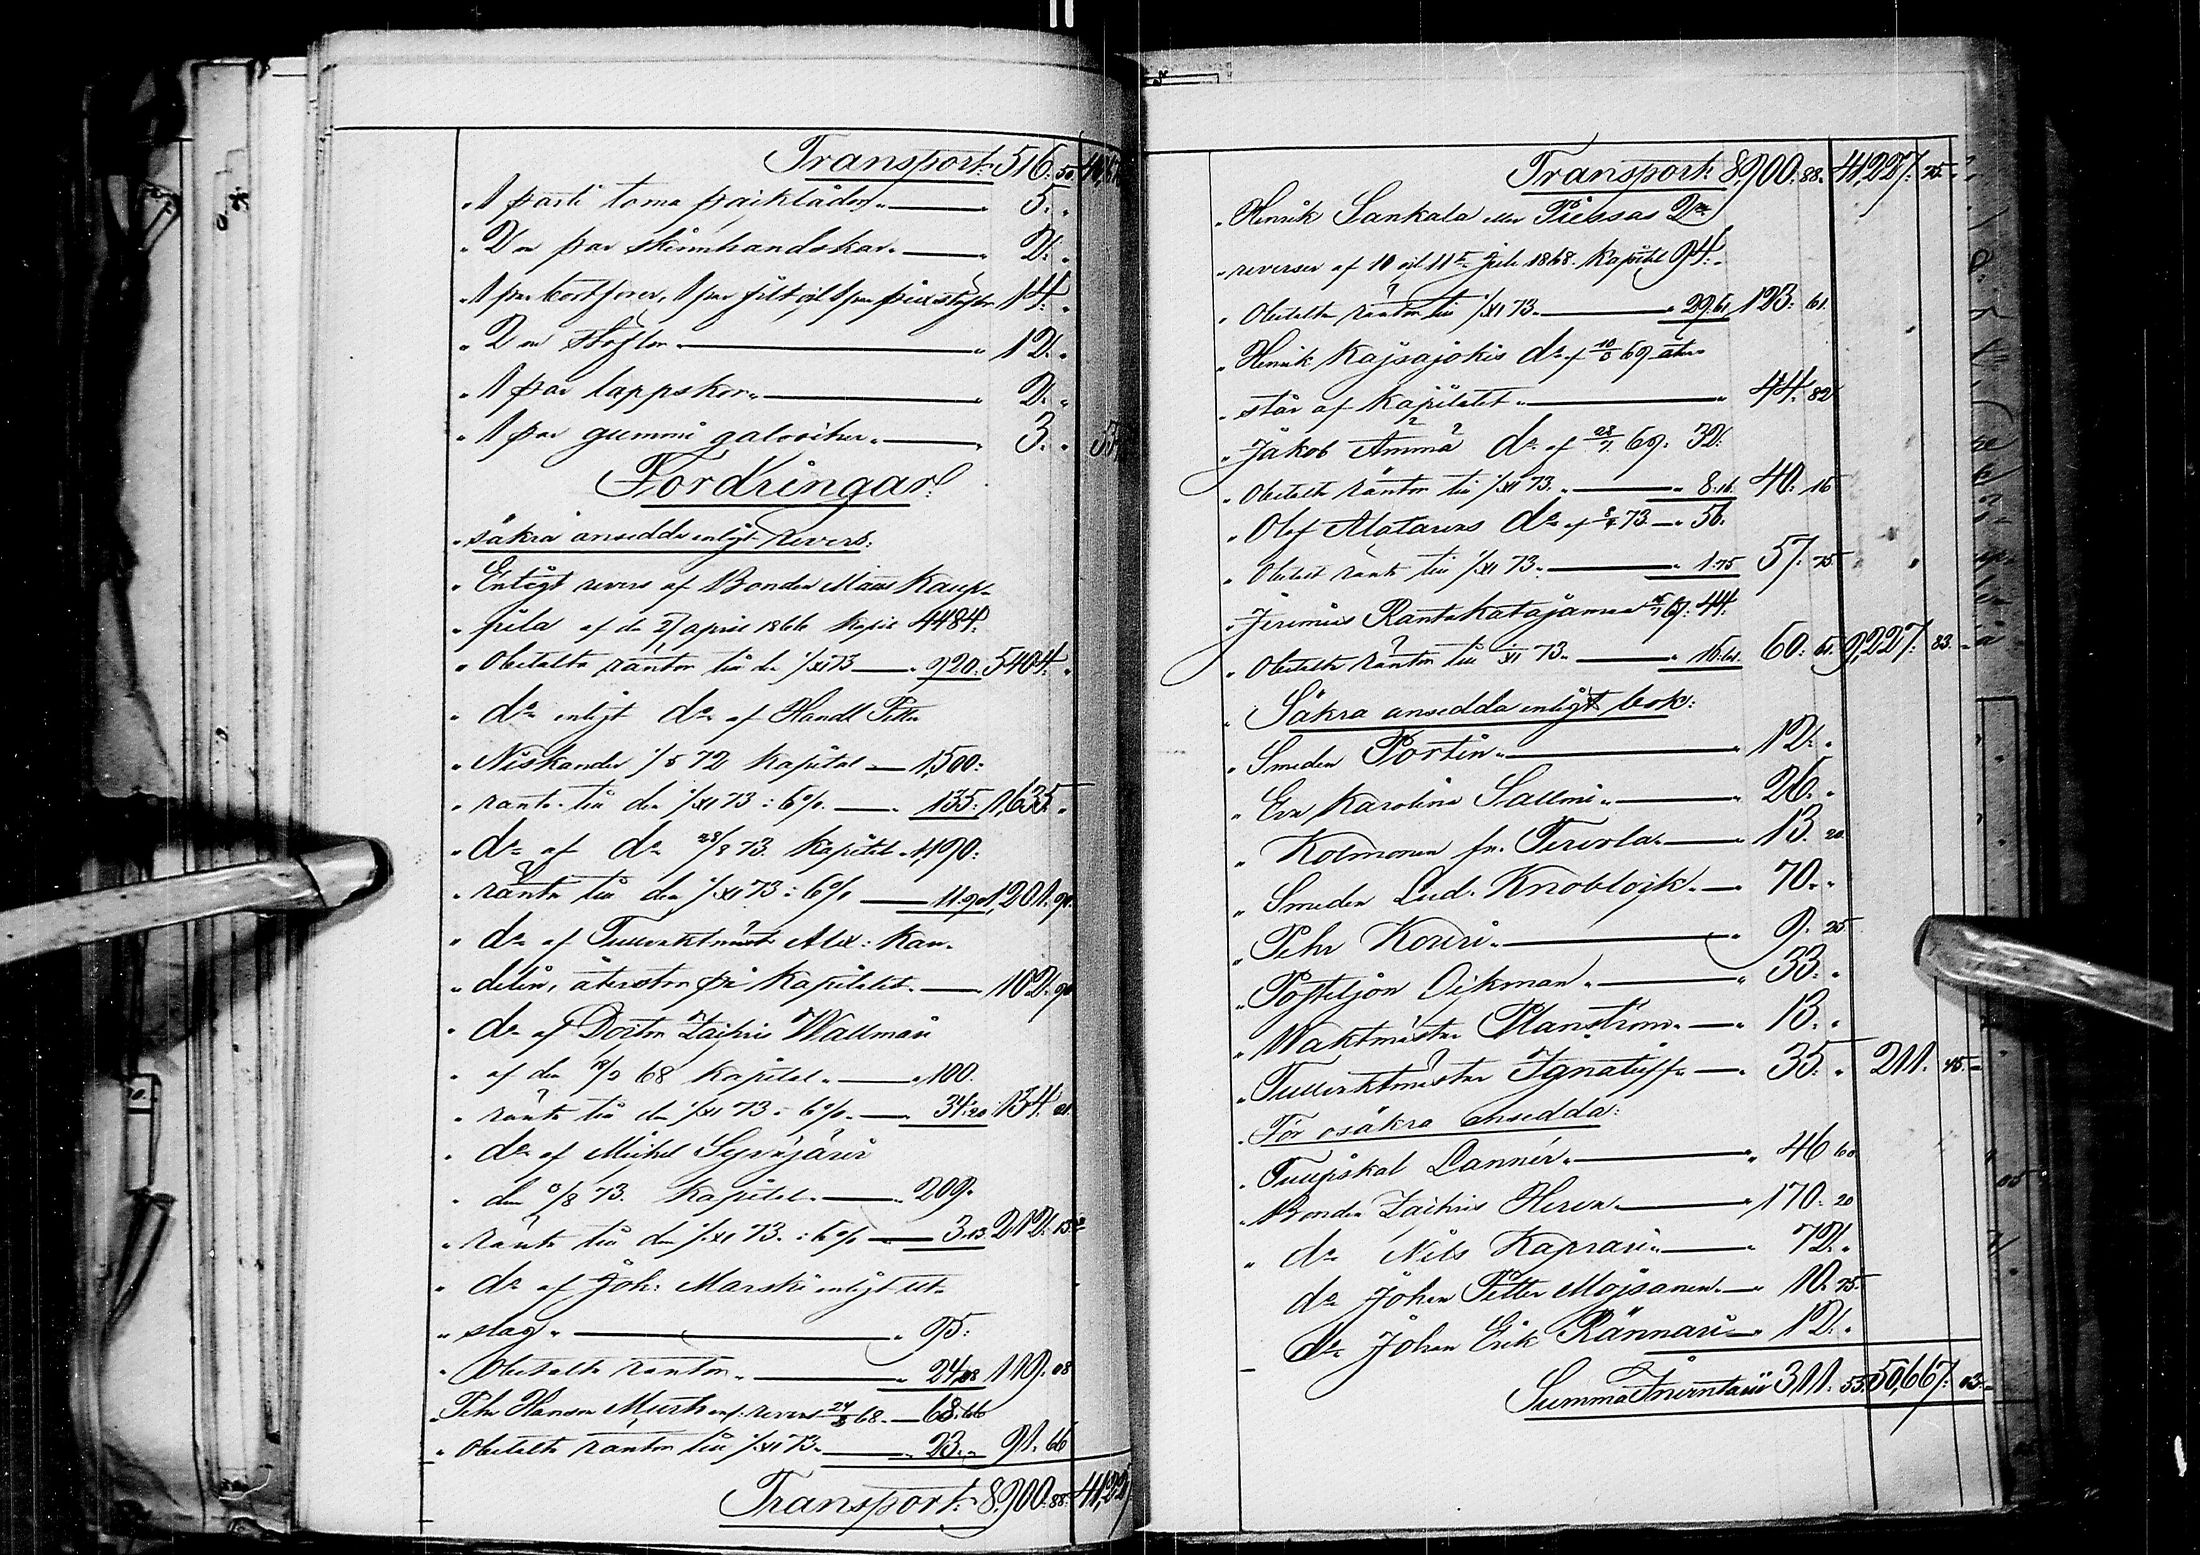 Transport: 516. 50.
" 1 parti toma
" 2 ne par skinnhandskar " 2: "
" 1 par bottforer, 1 par filt, och 1 par 14: "
" 2 ne Stoflor " 12: "
" 1 par lappskor " 2: "
" 1 par gummi galoscher " 3: "
Fordringar:
" säkra ansedda enligt revers:
" Enligt revers af Bonden Maus Kaup-
" pila af den 27 april 1866 Kapit 4484:
" Obetalta räntor till den 1/XI 73 " 920: 5404: "
" do enligt do af Handl Petter
" Niskander 1/5 72 Kapital 1,500:
" ränta till den 1/XI 73 : 6% " 135: 1,635: "
" do af do 28/8 73. Kapital " 1,190:
" ränta till den 1/XI 73 : 6% 11.90 1,201. 90.
" do af Tullvaktmäst Alex: Kan-
" delin, återstår på Kapitalet 102. 90
" do af Zachris Wallman
" af den 68 Kapital " 100.
" ränta till den 1/XI 73 : 6% " 34: 20 134. 20.
" do af Michel Syväjärvi
" den /8 73. Kapital 209:
" ränta till den 1/XI 73. : 6% 3.13 212. 13
" do af Joh: Marski enligt ut-
" slag " " 95:
" Obetalta räntor " " 24,08 119. 08
" Pehr Hansson enl: revers 24/8 68. 68.66
" Obetalta räntor till 1/XI 73 " 23. " 91. 66
Transport: 8,900. 88. 41,227
Transport: 8,900. 88. 41,227. 25.
" Henrik Sankala eller Piessas 2ne
" reverser af 10 och 11te juli 1868. Kapital 94:
" Obetalta räntor till 1/XI 73. " 29.61 123. 61.
" Henrik Kajsajokis do af 69 åter-
" står af Kapitalet " " 44. 82
" Jakob Ämmä do af 28/7 69. 32:
" Obetalta räntor till 1/XI 73. " 8.16. 40. 16
" Olof Alatarens do af 73 " 56.
" Obetald ränta till 1/XI 73. " 1.75 57. 75.
" Jeremias Rantakatajamaa 69. 44:
" Obetalta räntor till 1/XI 73. " 16.61. 60. 61. 9,227. 83.
" Säkra ansedda enligt bok:
" Smeden Portin " " 12. "
" Eva Karolina Sallmi " " 26. "
" Kolmonen fr. Tervola 13. 20
" Smeden Lud. Knobloijk. 70. "
" Pehr Kouri " 9. 25
" Postiljon Dijkman " " 33. "
" Waktmäster Planström. " 13. "
" Tullvaktmäster Ignatieff " 35. " 211. 45.
" För osäkra ansedda:
" Danner. " 46 60
" Bonden Zachris Herva " 170. 20
" do Nils Kaprari " " 72. "
do Johan Petter Mojsanen " 10. 75.
do Johan Erik Rännäri " 12. "
Summa Inventarii 311. 55. 50,667. 03.